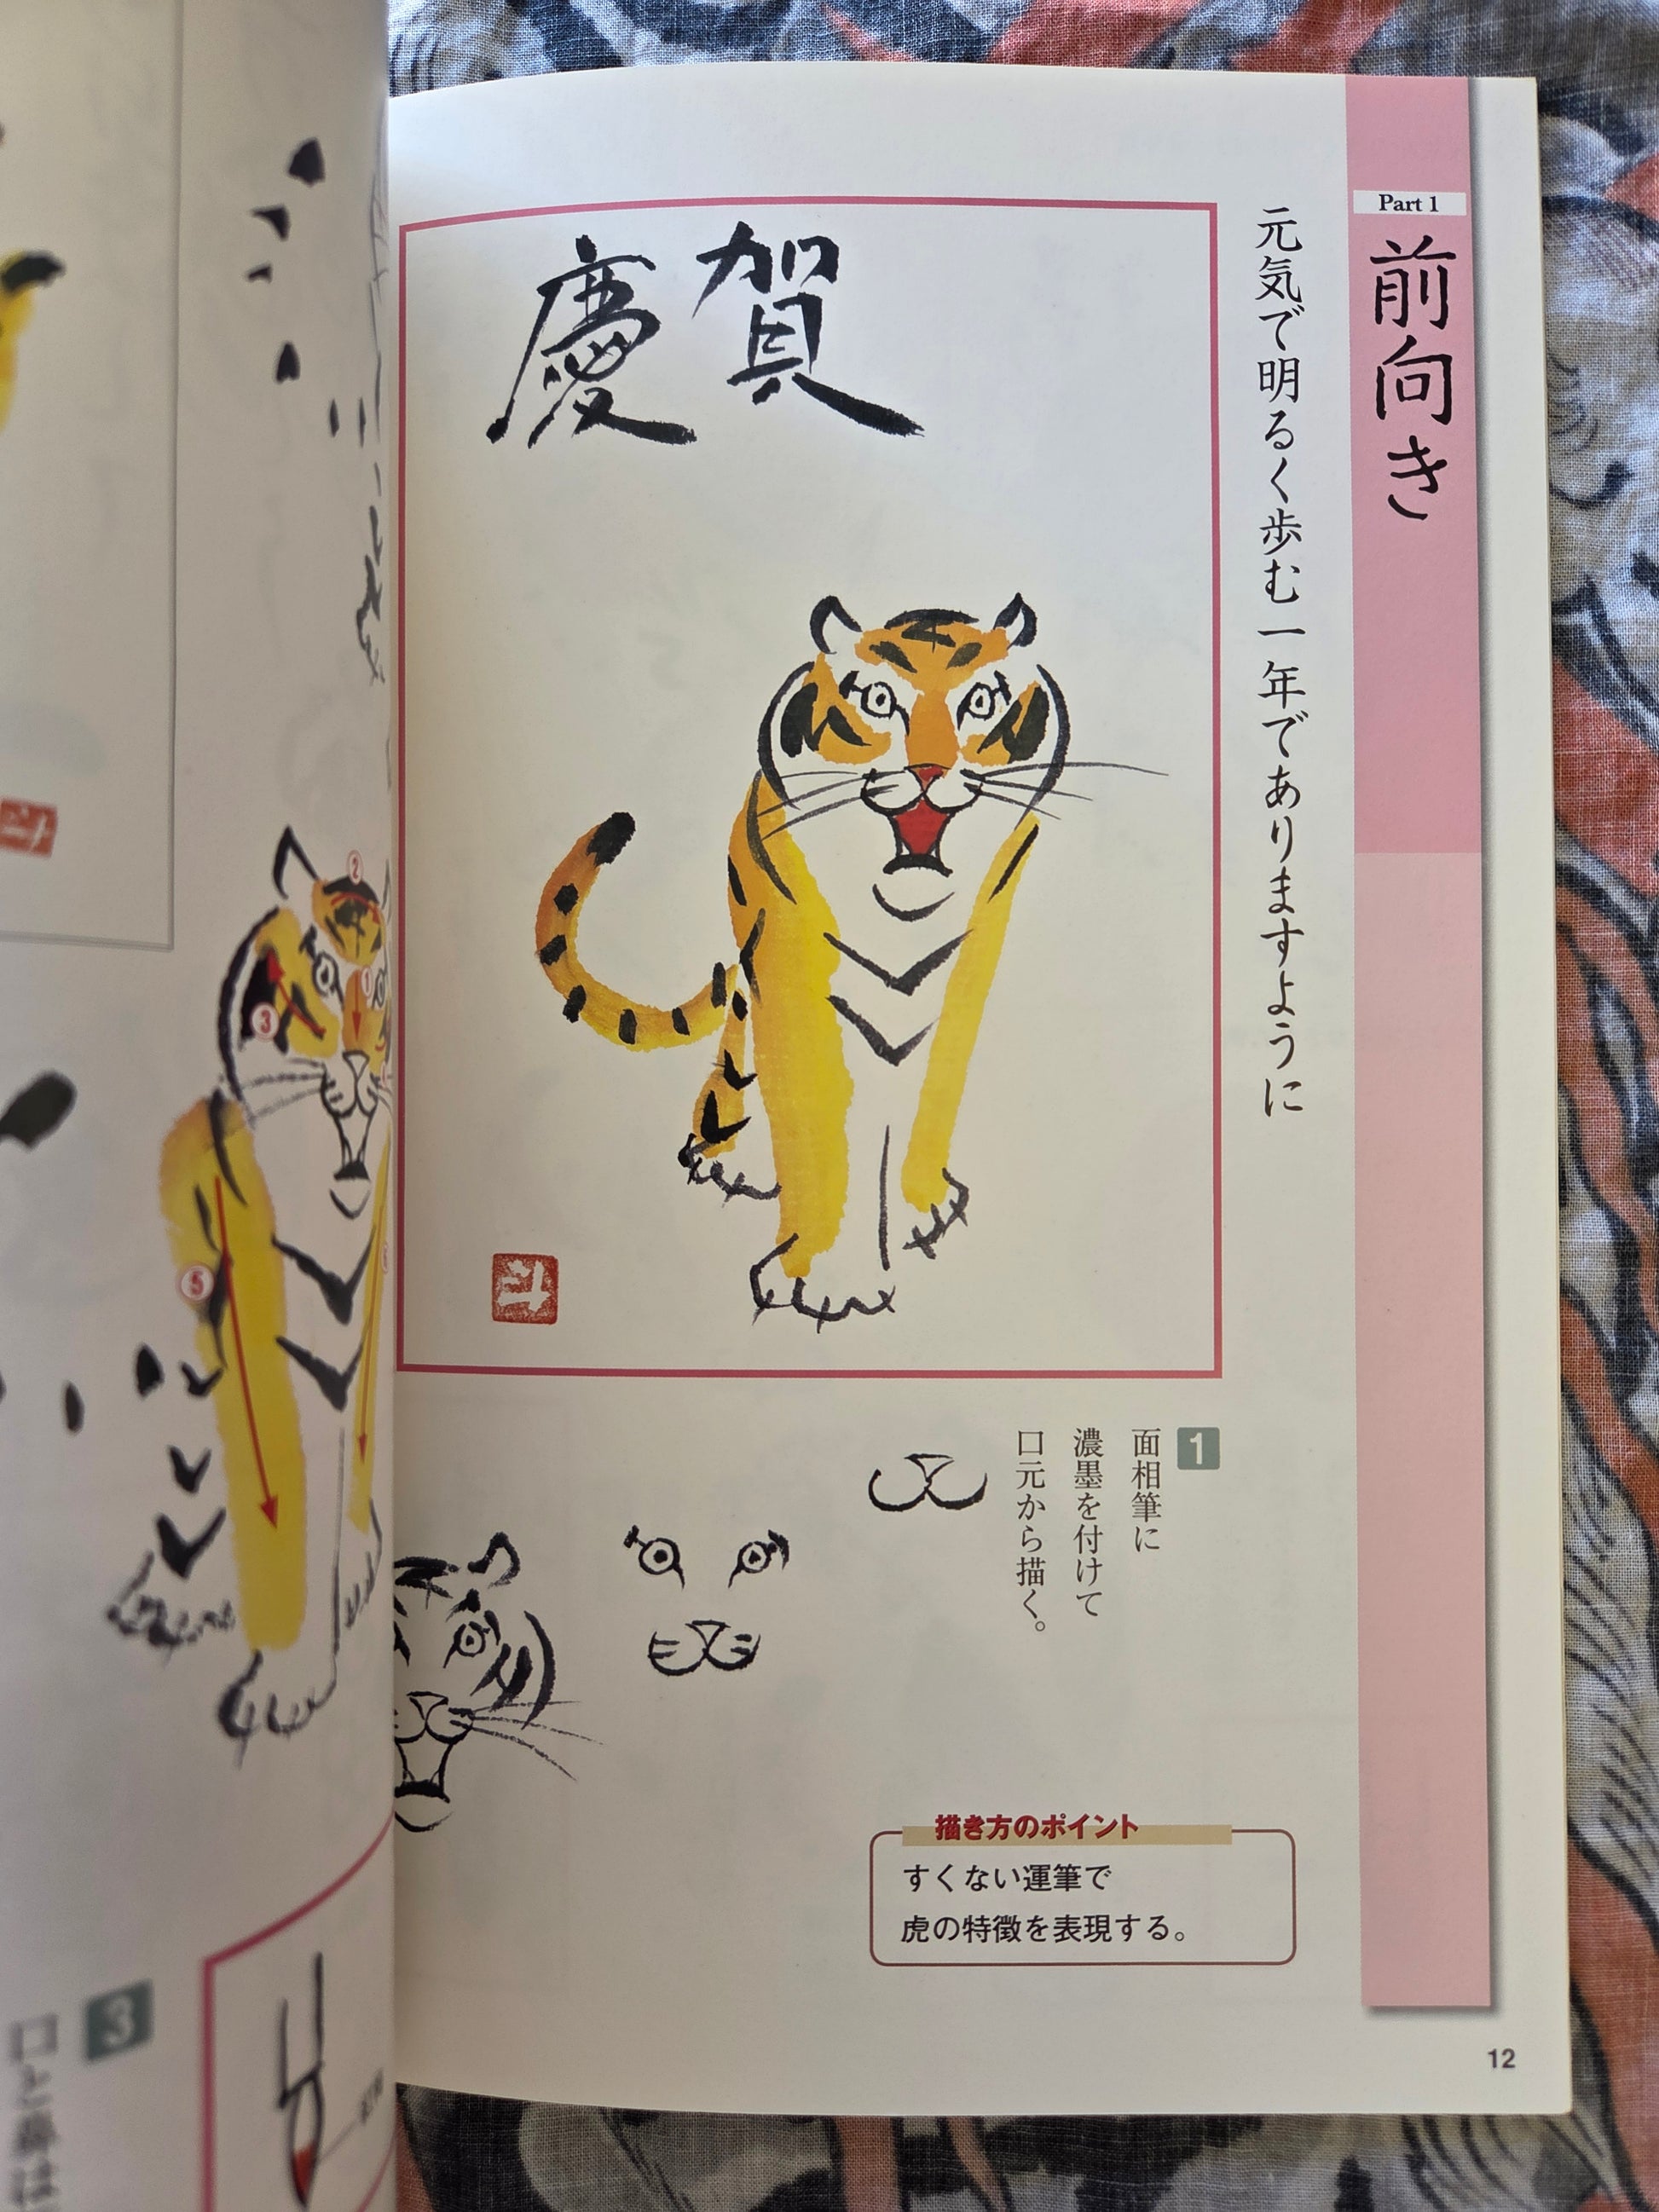 Part 1
前向き
元気で明るく歩む一年でありますように
賀
慶
斗
1
面相筆に
濃墨を付けて
口元から描く。
描き方のポイント
すくない運筆で
虎の特徴を表現する。
12
2
1
3
5
3
口と鼻は